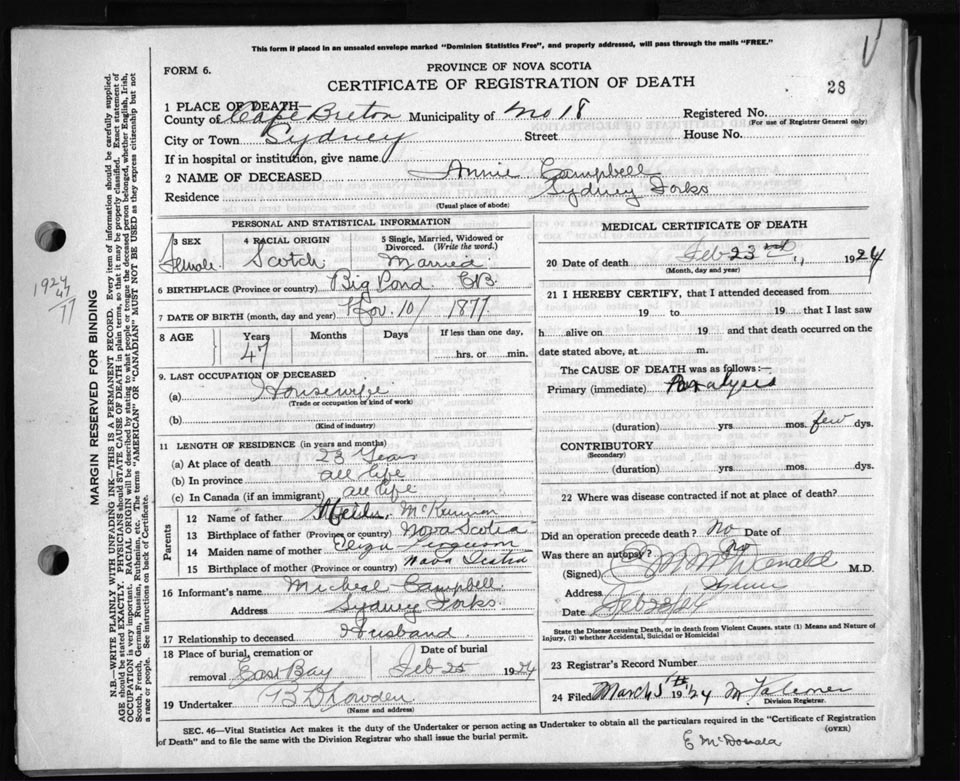 This form if placed in an unsealed envelope marked "Dominion Statistics Free", and properly addressed, will pass through the mails "FREE."
FORM 6.
PROVINCE OF NOVA SCOTIA
CERTIFICATE OF REGISTRATION OF DEATH
28
1 PLACE OF DEATH—
County of Cape Breton Municipality of No 18 Registered No.
(For use of Registrar General only)
City or Town Sydney Street House No.
If in hospital or institution, give name
2 NAME OF DECEASED Annie Campbell
Residence Sydney Forks
(Usual place of abode)
PERSONAL AND STATISTICAL INFORMATION
3 SEX 4 RACIAL ORIGIN 5 Single, Married, Widowed or Divorced. (Write the word.)
Female Scotch Married
6 BIRTHPLACE (Province or country) Big Pond CB
7 DATE OF BIRTH (month, day and year) Nov. 10/ 1877
8 AGE Years Months Days If less than one day,
47 hrs. or min.
9. LAST OCCUPATION OF DECEASED
(a) Housewife
(Trade or occupation or kind of work)
(b)
(Kind of industry)
11 LENGTH OF RESIDENCE (in years and months)
(a) At place of death 23 Years
(b) In province all life
(c) In Canada (if an immigrant) all life
Parents
12 Name of father McKinnon
13 Birthplace of father (Province or country) Nova Scotia
14 Maiden name of mother Eliza Ferguson
15 Birthplace of mother (Province or country) Nova Scotia
16 Informant's name Micheal Campbell
Address Sydney Forks
17 Relationship to deceased Husband
18 Place of burial, cremation or removal East Bay
Date of burial Feb 25 1924
19 Undertaker
(Name and address)
MEDICAL CERTIFICATE OF DEATH
20 Date of death Feb 23rd 1924
(Month, day and year)
21 I HEREBY CERTIFY, that I attended deceased from
19 to 19 that I last saw
h alive on 19 and that death occurred on the
date stated above, at m.
The CAUSE OF DEATH was as follows:—
Primary (immediate) Paralysis
(duration) yrs. mos. few dys.
CONTRIBUTORY
(Secondary)
(duration) yrs. mos. dys.
22 Where was disease contracted if not at place of death?
Did an operation precede death? No Date of
Was there an autopsy? No
(Signed) McDonald M.D.
Address
Date Feb 23/24
State the Disease causing Death, or in death from Violent Causes, state (1) Means and Nature of Injury, (2) whether Accidental, Suicidal or Homicidal
23 Registrar's Record Number
24 Filed March 5th 1924
Division Registrar.
SEC. 46—Vital Statistics Act makes it the duty of the Undertaker or person acting as Undertaker to obtain all the particulars required in the "Certificate of Registration of Death" and to file the same with the Division Registrar who shall issue the burial permit.
(OVER)
E McDonald
1924
47
77
MARGIN RESERVED FOR BINDING
N.B.—WRITE PLAINLY WITH UNFADING INK—THIS IS A PERMANENT RECORD. Every item of information should be carefully supplied.
AGE should be stated EXACTLY. PHYSICIANS should STATE CAUSE OF DEATH in plain terms, so that it may be properly classified. Exact statement of
OCCUPATION is very important. RACIAL ORIGIN will be described by stating to what people or tongue the deceased person belonged, whether English, Irish,
Scotch, French, German, Russian, Ruthenian, etc. The terms "AMERICAN" or "CANADIAN" MUST NOT BE USED as they express citizenship but not
a race or people. See instructions on back of Certificate.